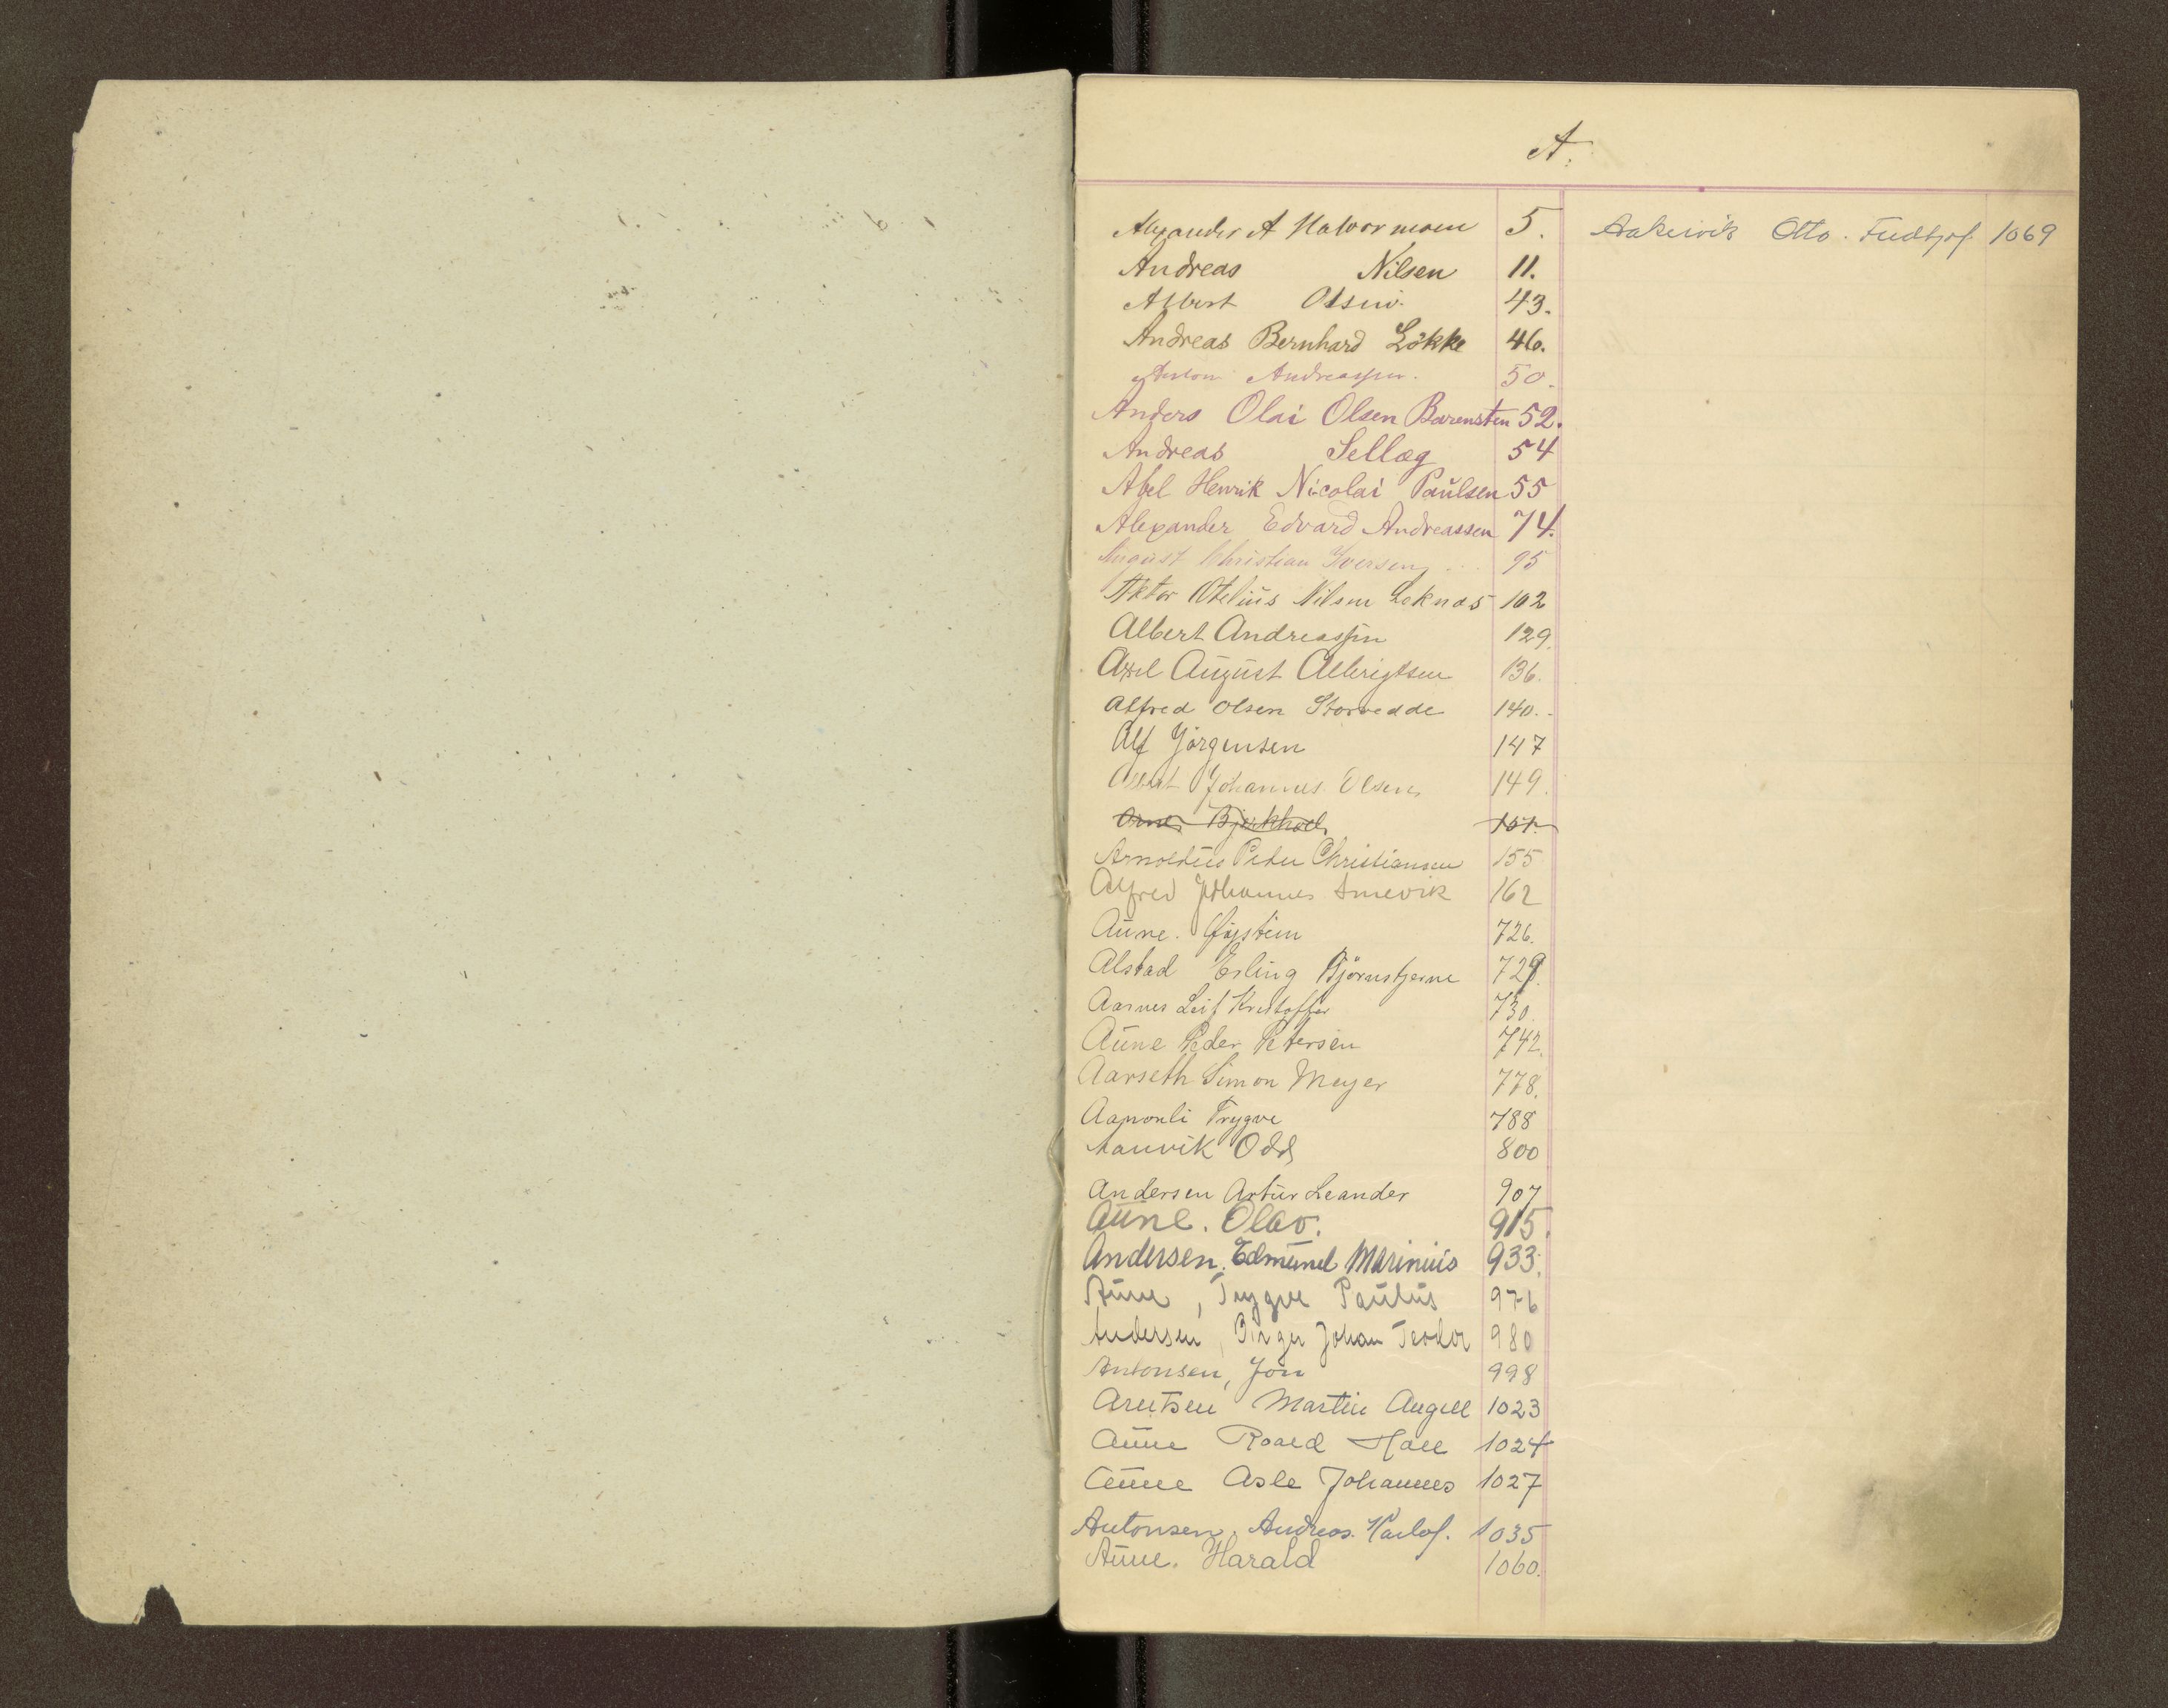 A.
Alexander A Halvorsmoen 5.
Andreas Nilsen 11.
Albert Olsen 43.
Andreas Bernhard Lökke 46.
Anton Andreassen. 50.
Anders Olai Olsen Barensten 52.
Andreas Sellæg 54
Abel Henrik Nicolai Paulsen 55
Alexander Edvard Andreassen 74.
August Christian Iversen 95
Aktor Otelius Nilsen Leknæs 102
Albert Andreassen 129.
Axel August Albrigtsen 136.
Alfred Olsen Storvedde 140.
Alf Jörgensen 147
Albert Johannes Olsen 149.
Arne 151.
Arnoldus Peder Christiansen 155
Alfred Johannes Smevik 162
Aune. Øystein 726.
Alstad Erling Björnstjerne 729.
Aarnes Leif Kristoffer 730.
Aune Peder Petersen 742.
Aarseth Simon Meyer 778.
Trygve 788
Odd 800
Andersen Artur Leander 907
Aune. Olav. 915.
Andersen. Edmund Marinius 933.
Aune, Trygve Paulus 976
Andersen, Birger Johan Teodor 980
Antonsen, Jon 998
Arentsen Martin Angell 1023
Aune Roald Hall 1024
Aune Asle Johannes 1027
Antonsen. Andreas. 1035
Aune. Harald 1060.
Otto. 1069